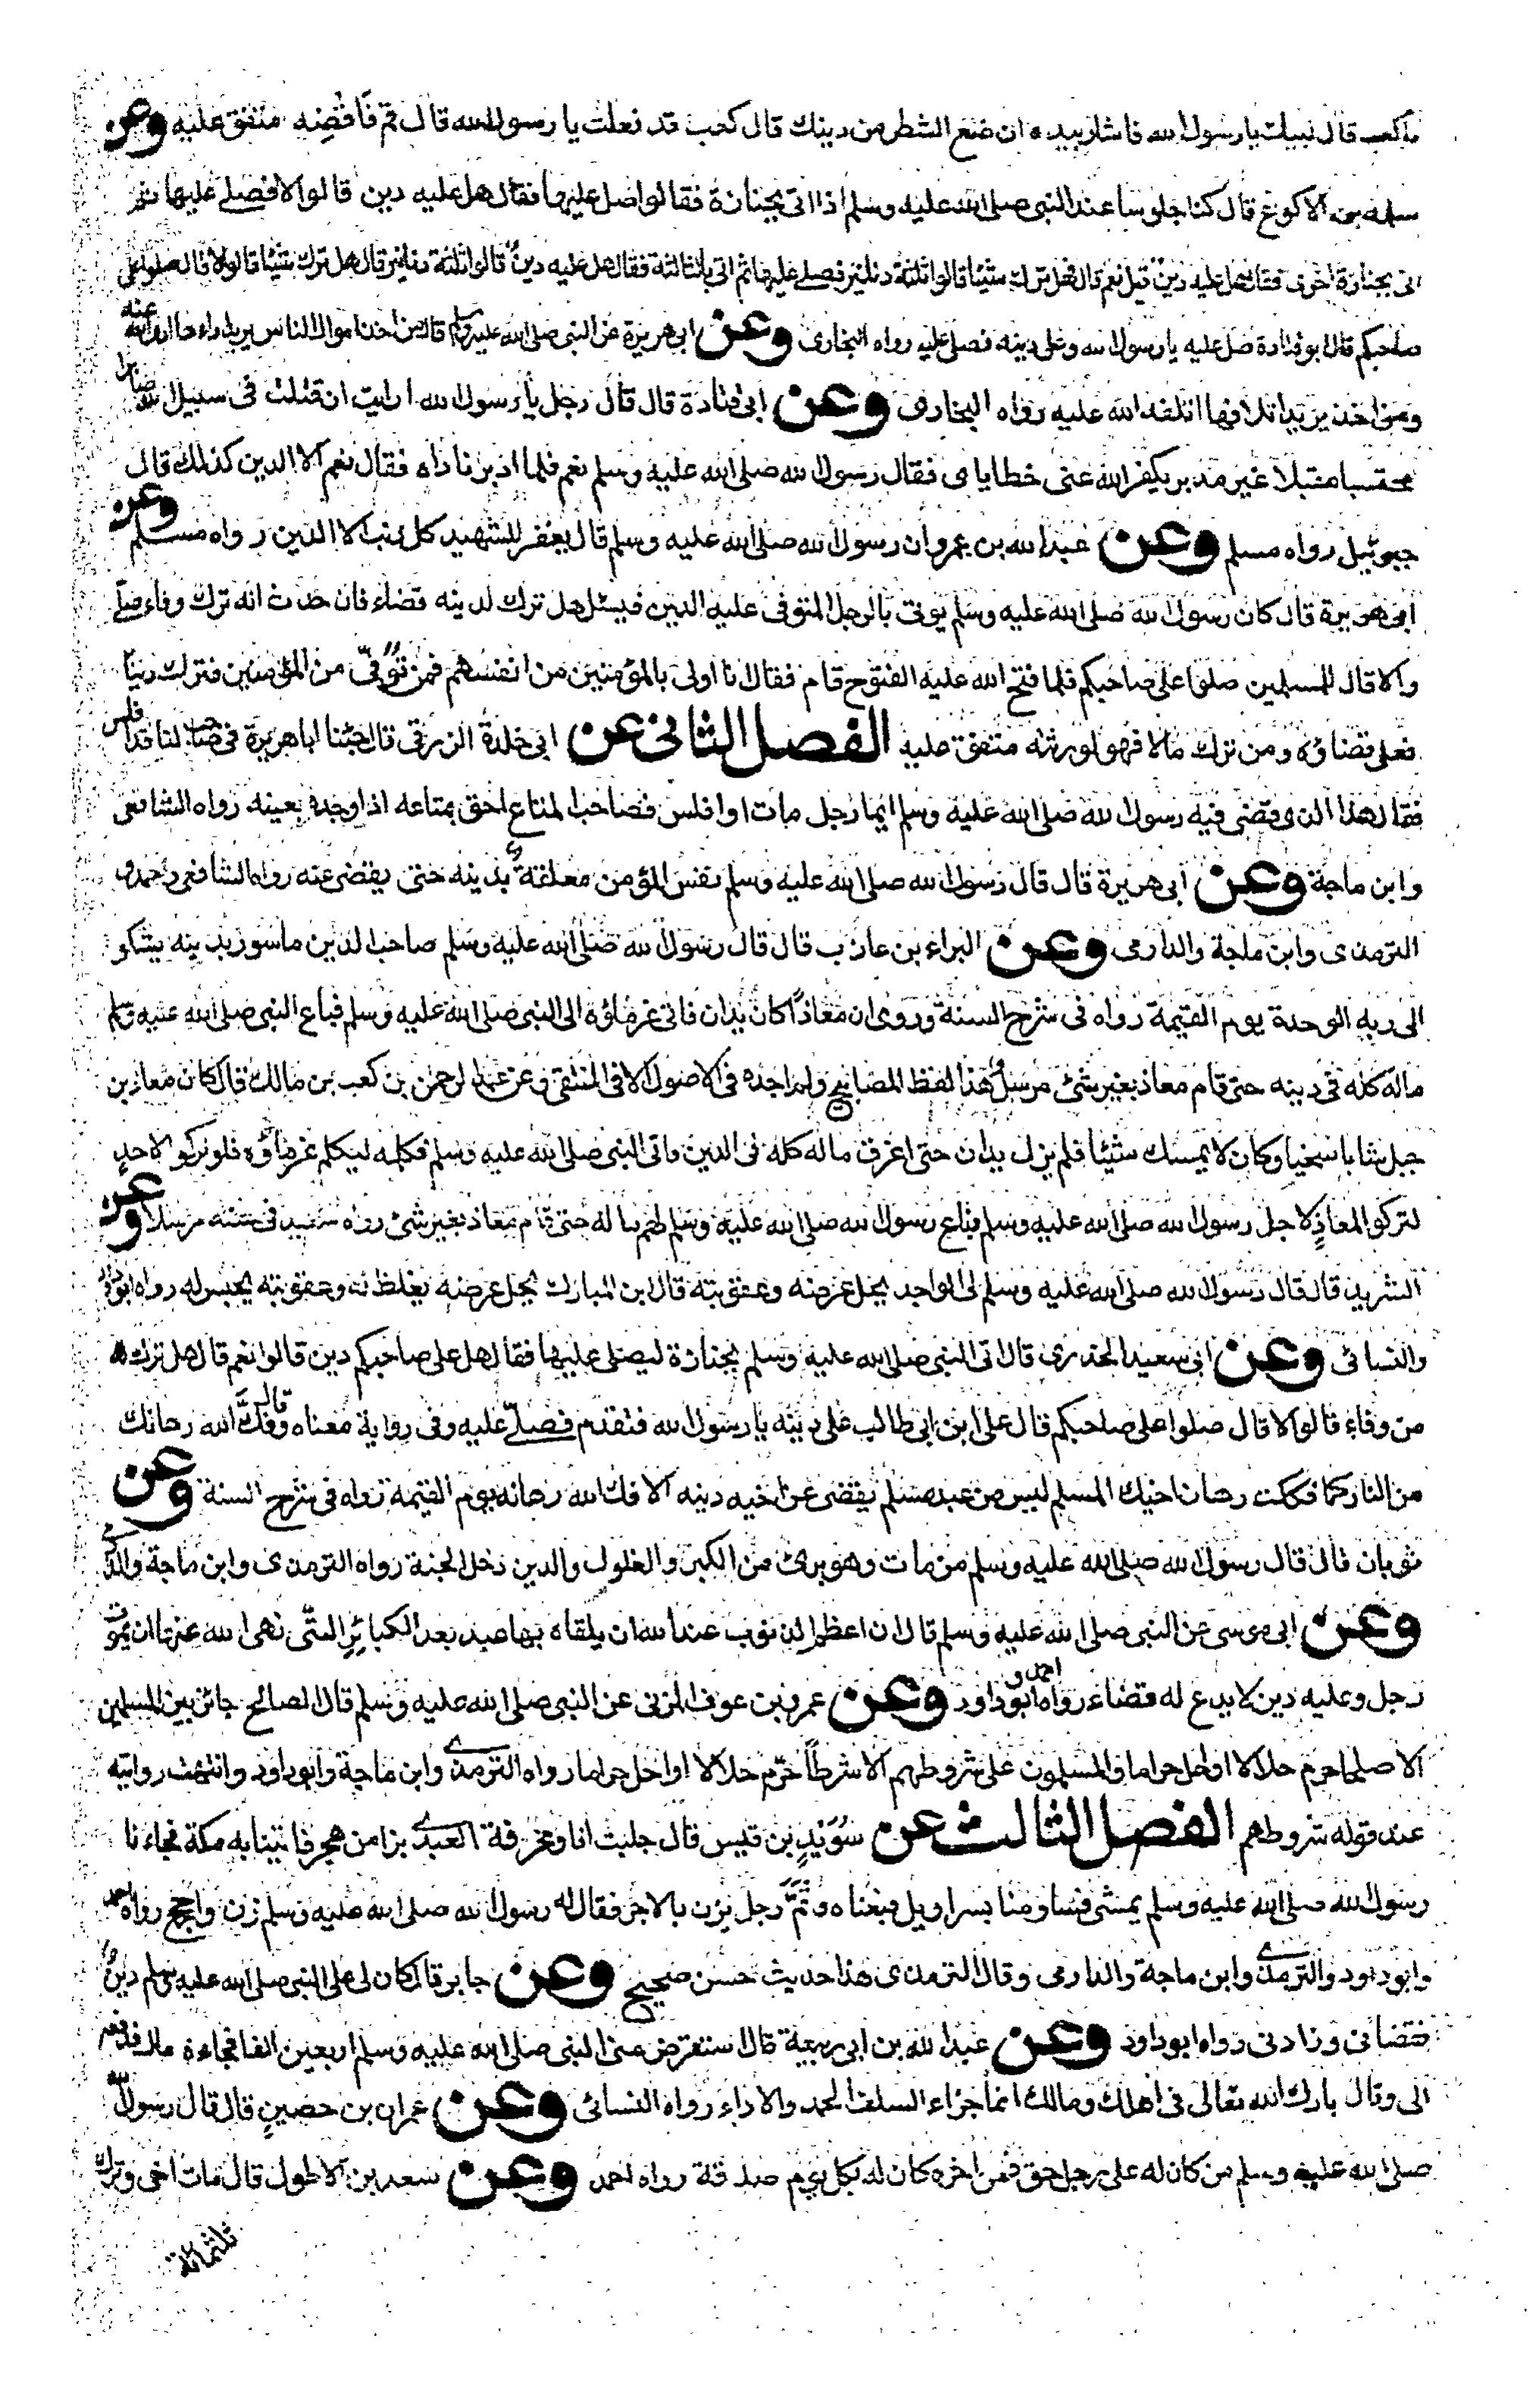 يا كعب قال لبيك يا رسول الله فاشار بيده ان ضع الشطر من دينك قال كعب قد فعلت يا رسول الله قال قم فاقضه متفق عليه وعن
سلمة بن الاكوع قال كنا جلوسا عند النبي صلى الله عليه وسلم اذ اتى بجنازة فقالوا صل عليها فقال هل عليه دين قالوا لا فصلى عليها ثم
اتى بجنازة اخرى فقال هل عليه دين قيل نعم قال فهل ترك شيئا قالوا ثلثة دنانير فصلى عليها ثم اتى بالثالثة فقال هل عليه دين قالوا ثلثة دنانير قال هل ترك شيئا قالوا لا قال صلوا على
صاحبكم قال ابو قتادة صل عليه يا رسول الله وعلى دينه فصلى عليه رواه البخارى وعن ابى هريرة عن النبي صلى الله عليه وسلم قال من اخذ اموال الناس يريد اداءها ادى الله عنه
ومن اخذ يريد اتلافها اتلفه الله عليه رواه البخارى وعن ابى قتادة قال قال رجل يا رسول الله ارايت ان قتلت فى سبيل الله صابرا
محتسبا مقبلا غير مدبر يكفر الله عنى خطاياى فقال رسول الله صلى الله عليه وسلم نعم فلما ادبر ناداه فقال نعم الا الدين كذلك قال
جبرئيل رواه مسلم وعن عبد الله بن عمرو ان رسول الله صلى الله عليه وسلم قال يغفر للشهيد كل ذنب الا الدين رواه مسلم وعن
ابى هريرة قال كان رسول الله صلى الله عليه وسلم يوتى بالرجل المتوفى عليه الدين فيسئل هل ترك لدينه قضاء فان حدث انه ترك وفاء صلى
والا قال للمسلمين صلوا على صاحبكم فلما فتح الله عليه الفتوح قام فقال انا اولى بالمؤمنين من انفسهم فمن توفى من المؤمنين فترك دينا
فعلى قضاؤه ومن ترك مالا فهو لورثته متفق عليه الفصل الثانى عن ابى خلدة الزرقى قال جئنا ابا هريرة فى صاحب لنا قد افلس
فقال هذا الذى قضى فيه رسول الله صلى الله عليه وسلم ايما رجل مات او افلس فصاحب المتاع احق بمتاعه اذا وجده بعينه رواه الشافعى
وابن ماجة وعن ابى هريرة قال قال رسول الله صلى الله عليه وسلم نفس المؤمن معلقة بدينه حتى يقضى عنه رواه الشافعى واحمد و
الترمذى وابن ماجة والدارمى وعن البراء بن عازب قال قال رسول الله صلى الله عليه وسلم صاحب الدين ماسور بدينه يشكو
الى ربه الوحدة يوم القيمة رواه فى شرح السنة وروى ان معاذا كان يدان فاتى غرماؤه الى النبي صلى الله عليه وسلم فباع النبي صلى الله عليه وسلم
ماله كله فى دينه حتى قام معاذ بغير شئ مرسل هذا لفظ المصابيح ولم اجده فى الاصول الا فى المنتقى وعن عبد الرحمن بن كعب بن مالك قال كان معاذ بن
جبل شابا سخيا وكان لا يمسك شيئا فلم يزل يدان حتى اغرق ماله كله فى الدين فاتى النبي صلى الله عليه وسلم فكلمه ليكلم غرماؤه فلو تركوا لاحد
لتركوا لمعاذ لاجل رسول الله صلى الله عليه وسلم فباع رسول الله صلى الله عليه وسلم لهم ماله حتى قام معاذ بغير شئ رواه سعيد فى سننه مرسلا وعن
الشريد قال قال رسول الله صلى الله عليه وسلم لى الواجد يحل عرضه وعقوبته قال ابن المبارك يحل عرضه يغلظ له وعقوبته يحبس له رواه ابو داود
والنسائى وعن ابى سعيد الخدرى قال اتى النبي صلى الله عليه وسلم بجنازة ليصلى عليها فقال هل على صاحبكم دين قالوا نعم قال هل ترك له
من وفاء قالوا لا قال صلوا على صاحبكم قال على ابن ابى طالب على دينه يا رسول الله فتقدم فصلى عليه وفى رواية معناه وقال فك الله رهانك
من النار كما فككت رهان اخيك المسلم ليس من عبد مسلم يقضى عن اخيه دينه الا فك الله رهانه يوم القيمة رواه فى شرح السنة وعن
ثوبان قال قال رسول الله صلى الله عليه وسلم من مات وهو برئ من الكبر والغلول والدين دخل الجنة رواه الترمذى وابن ماجة والدارمى
وعن ابى موسى عن النبي صلى الله عليه وسلم قال ان اعظم الذنوب عند الله ان يلقاه بها عبد بعد الكبائر التى نهى الله عنها ان يموت
رجل وعليه دين لا يدع له قضاء رواه احمد و ابوداود وعن عمرو بن عوف المزنى عن النبي صلى الله عليه وسلم قال الصلح جائز بين المسلمين
الا صلحا حرم حلالا او احل حراما والمسلمون على شروطهم الا شرطا حرم حلالا او احل حراما رواه الترمذى وابن ماجة وابوداود وانتهت روايته
عند قوله شروطهم الفصل الثالث عن سويد بن قيس قال جلبت انا ومخرفة العبدى بزا من هجر فاتينا به مكة فجاءنا
رسول الله صلى الله عليه وسلم يمشى فساومنا بسراويل فبعناه وثم رجل يزن بالاجر فقال له رسول الله صلى الله عليه وسلم زن وارجح رواه احمد
وابوداود والترمذى وابن ماجة والدارمى وقال الترمذى هذا حديث حسن صحيح وعن جابر قال كان لى على النبي صلى الله عليه وسلم دين
فقضانى وزادنى رواه ابوداود وعن عبد الله بن ابى ربيعة قال استقرض منى النبي صلى الله عليه وسلم اربعين الفا فجاءه مال فدفعه
الى وقال بارك الله تعالى فى اهلك ومالك انما جزاء السلف الحمد والاداء رواه النسائى وعن عمران بن حصين قال قال رسول الله
صلى الله عليه وسلم من كان له على رجل حق فمن اخره كان له بكل يوم صدقة رواه احمد وعن سعد بن الاطول قال مات اخى وترك
ثلثمائة